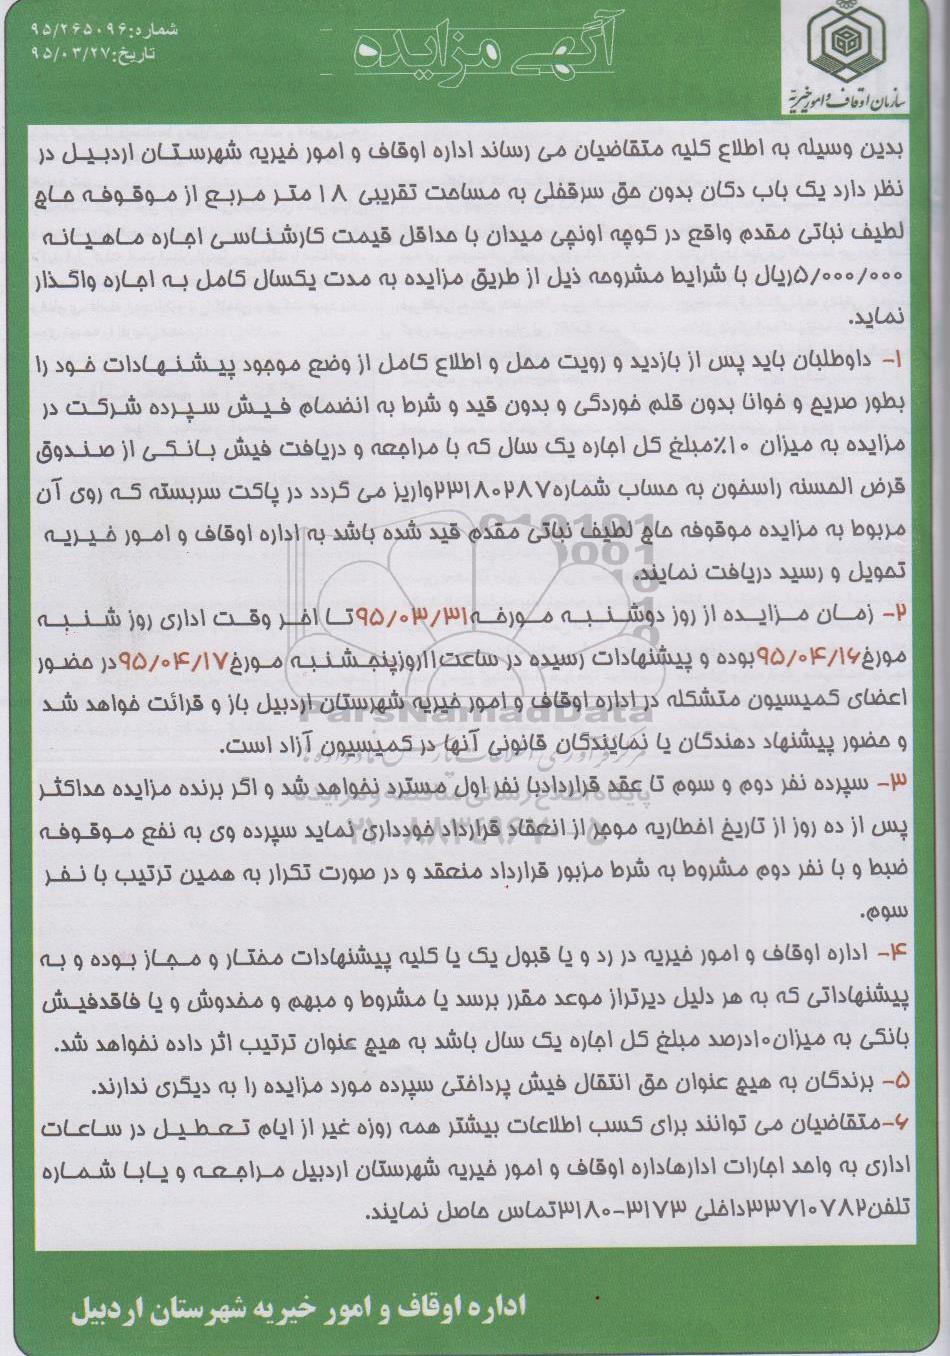 شماره:۹۵/۲۶۵۰۹۶
تاریخ:۹۵/۰۳/۲۷
آگهی مزایده
سازمان اوقاف و امور خیریه
بدین وسیله به اطلاع کلیه متقاضیان می رساند اداره اوقاف و امور خیریه شهرستان اردبیل در
نظر دارد یک باب دکان بدون حق سرقفلی به مساحت تقریبی ۱۸ متر مربع از موقوفه حاج
لطیف نباتی مقدم واقع در کوچه اونچی میدان با حداقل قیمت کارشناسی اجاره ماهیانه
۵/۰۰۰/۰۰۰ریال با شرایط مشروحه ذیل از طریق مزایده به مدت یکسال کامل به اجاره واگذار
نماید.
۱- داوطلبان باید پس از بازدید و رویت محل و اطلاع کامل از وضع موجود پیشنهادات خود را
بطور صریح و خوانا بدون قلم خوردگی و بدون قید و شرط به انضمام فیش سپرده شرکت در
مزایده به میزان ۱۰٪مبلغ کل اجاره یک سال که با مراجعه و دریافت فیش بانکی از صندوق
قرض الحسنه راسخون به حساب شماره۲۳۱۸۰۲۸۷واریز می گردد در پاکت سربسته که روی آن
مربوط به مزایده موقوفه حاج لطیف نباتی مقدم قید شده باشد به اداره اوقاف و امور خیریه
تحویل و رسید دریافت نمایند.
۲- زمان مزایده از روز دوشنبه مورخه۹۵/۰۳/۳۱تا اخر وقت اداری روز شنبه
مورخ۹۵/۰۴/۱۶بوده و پیشنهادات رسیده در ساعت۱۱روزپنجشنبه مورخ۹۵/۰۴/۱۷در حضور
اعضای کمیسیون متشکله در اداره اوقاف و امور خیریه شهرستان اردبیل باز و قرائت خواهد شد
و حضور پیشنهاد دهندگان یا نمایندگان قانونی آنها در کمیسیون آزاد است.
۳- سپرده نفر دوم و سوم تا عقد قراردادبا نفر اول مسترد نخواهد شد و اگر برنده مزایده حداکثر
پس از ده روز از تاریخ اخطاریه موجر از انعقاد قرارداد خودداری نماید سپرده وی به نفع موقوفه
ضبط و با نفر دوم مشروط به شرط مزبور قرارداد منعقد و در صورت تکرار به همین ترتیب با نفر
سوم.
۴- اداره اوقاف و امور خیریه در رد و یا قبول یک یا کلیه پیشنهادات مختار و مجاز بوده و به
پیشنهاداتی که به هر دلیل دیرتراز موعد مقرر برسد یا مشروط و مبهم و مخدوش و یا فاقدفیش
بانکی به میزان۱۰درصد مبلغ کل اجاره یک سال باشد به هیچ عنوان ترتیب اثر داده نخواهد شد.
۵- برندگان به هیچ عنوان حق انتقال فیش پرداختی سپرده مورد مزایده را به دیگری ندارند.
۶-متقاضیان می توانند برای کسب اطلاعات بیشتر همه روزه غیر از ایام تعطیل در ساعات
اداری به واحد اجارات ادارهاداره اوقاف و امور خیریه شهرستان اردبیل مراجعه و یابا شماره
تلفن۳۳۷۱۰۷۸۲داخلی ۳۱۷۳-۳۱۸۰تماس حاصل نمایند.
اداره اوقاف و امور خیریه شهرستان اردبیل
ParsNamadData